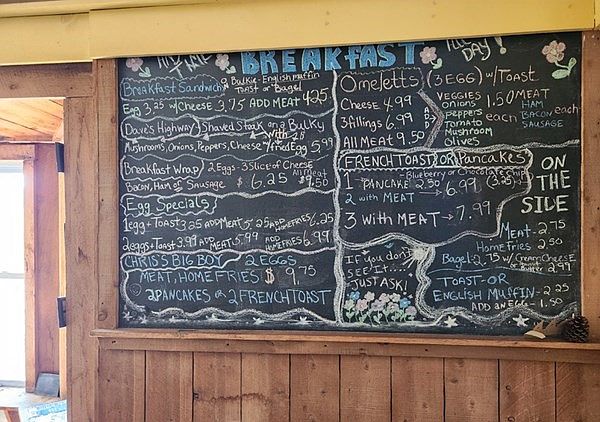 BREAKFAST
ALL DAY!
Breakfast Sandwich
Bulkie-English muffin
TOAST or Bagel
Egg 3.25 w/Cheese 3.75 ADD MEAT 4.25
Dave's Highway Shaved Steak on a Bulky
with
Mushrooms, Onions, Peppers, Cheese Fried Egg 5.99
Breakfast Wrap 2 Eggs 3 Slice of Cheese
Bacon, Ham or Sausage $6.25
All meat
$9.50
Egg Specials
1 egg + Toast 3.25 ADD MEAT 5.25 ADD HOMEFRIES 6.25
2 eggs + Toast 3.99 ADD MEAT 5.99 ADD HOMEFRIES 6.99
CHRIS'S BIG BOY 2 EGGS
MEAT, HOME FRIES $9.75
2 PANCAKES or 2 FRENCH TOAST
Omeletts (3 EGG) w/ TOAST
Cheese 4.99
3 fillings 6.99
All MEAT 9.50
ADD
VEGGIES
onions
peppers
Tomato
Mushroom
olives
1.50 each
MEAT
HAM
BACON
SAUSAGE
each
FRENCH TOAST OR Pancakes
- Blueberry or Chocolate Chip
1 - PANCAKE 2.50 (3.25)
2 with MEAT → 6.99
3 WITH MEAT → 7.99
If you don't
see it....
JUST ASK!
ON
THE
SIDE
Meat - 2.75
Home Fries - 2.50
Bagel - 2.75 w/ Cream Cheese
or Peanut Butter 2.99
TOAST - OR
ENGLISH MUFFIN - 2.25
ADD AN EGG - 1.50